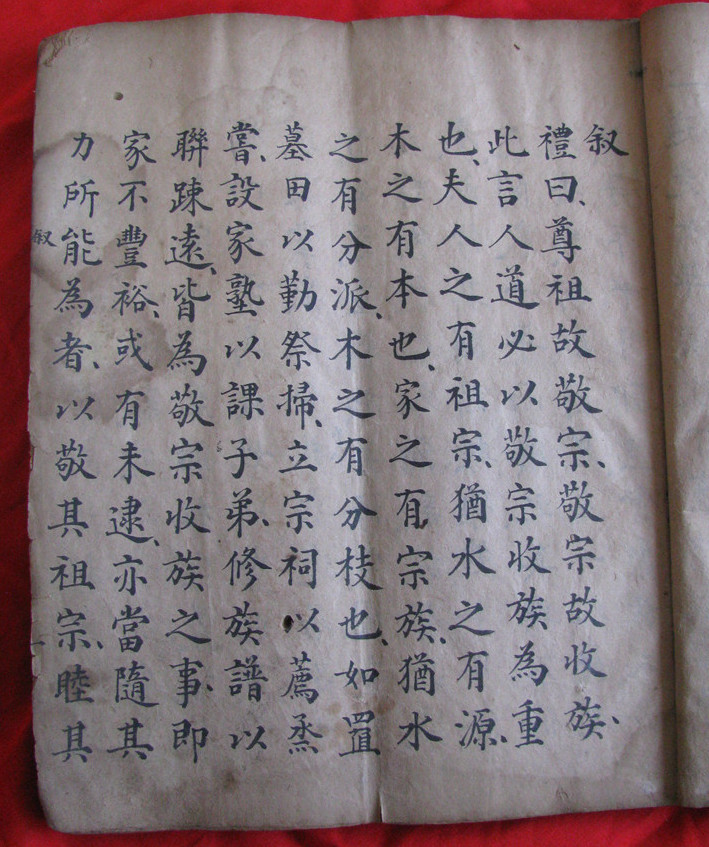 叙
禮曰、尊祖故敬宗、敬宗故收族、
此言人道必以敬宗收族為重
也、夫人之有祖宗、猶水之有源、
木之有本也、家之有宗族、猶水
之有分派、木之有分枝也、如置
墓田以勤祭掃、立宗祠以薦烝
嘗、設家塾以課子弟、修族譜以
聯踈遠、皆為敬宗收族之事、即
家不豐裕、或有未逮、亦當隨其
力所能為者、以敬其祖宗、睦其
叙
一